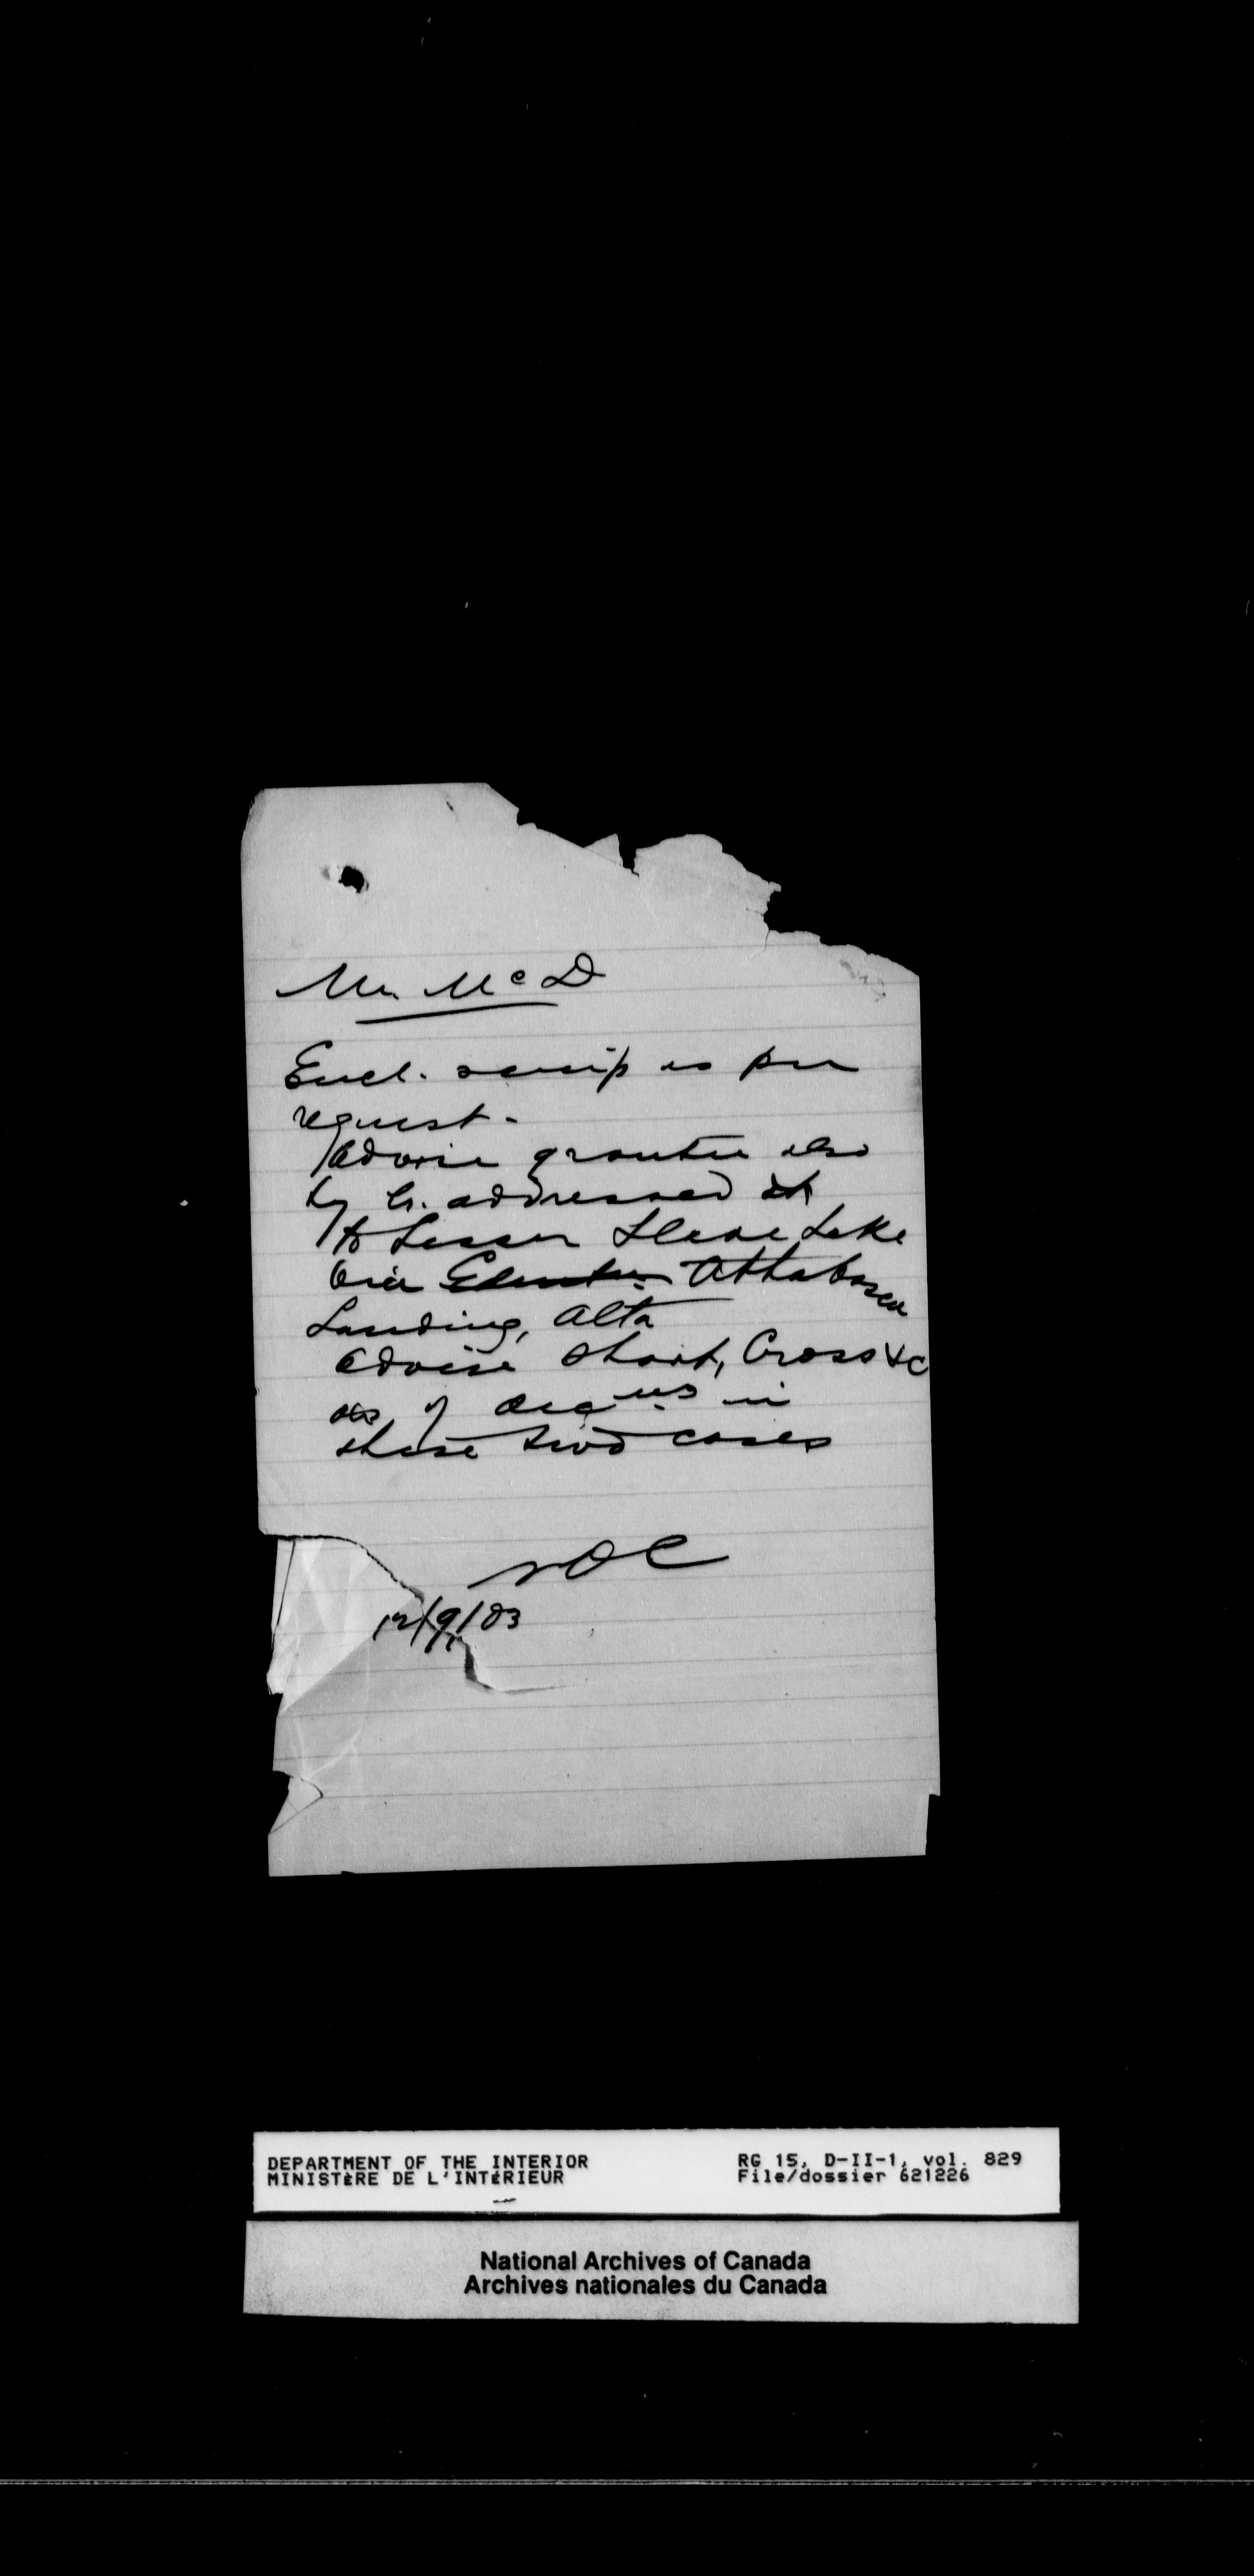 Mr. McD
Encl. scrip as per
request.
Advise grantee also
by b. addressed
to Lesser Slave Lake
via Edmonton Athabasca
Landing, Alta
Advise Short, Cross &c
of in
these two cases
12/9/03
DEPARTMENT OF THE INTERIOR
MINISTÈRE DE L'INTÉRIEUR
RG 15, D-II-1, vol. 829
File/dossier 621226
National Archives of Canada
Archives nationales du Canada